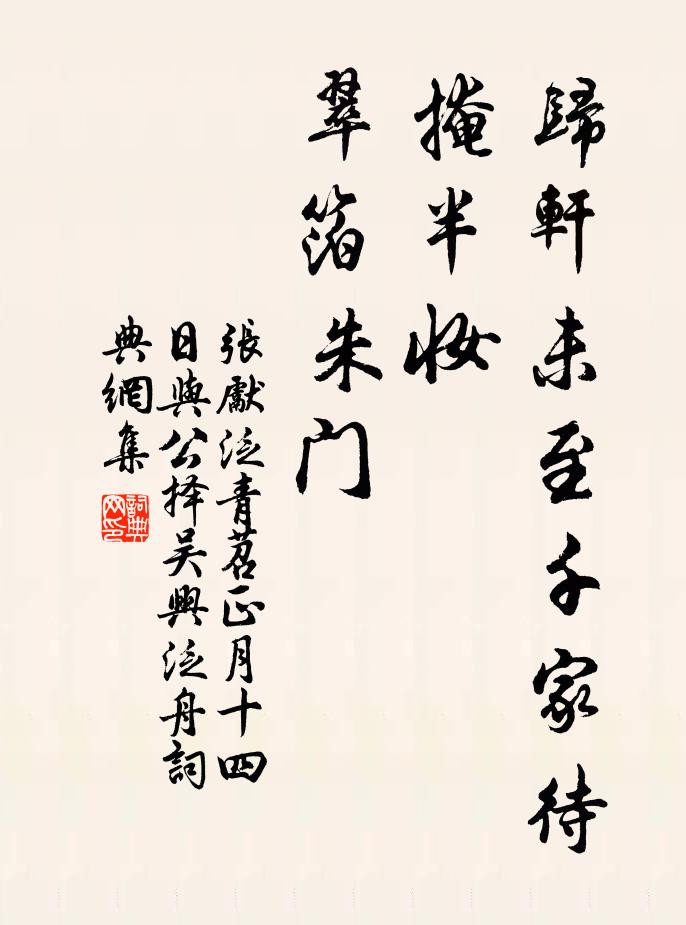 歸軒未至千家待
掩半妝
翠箔朱门
張先泛青苕正月十四
日與公择吴興泛舟詞
典網集
詞典網印